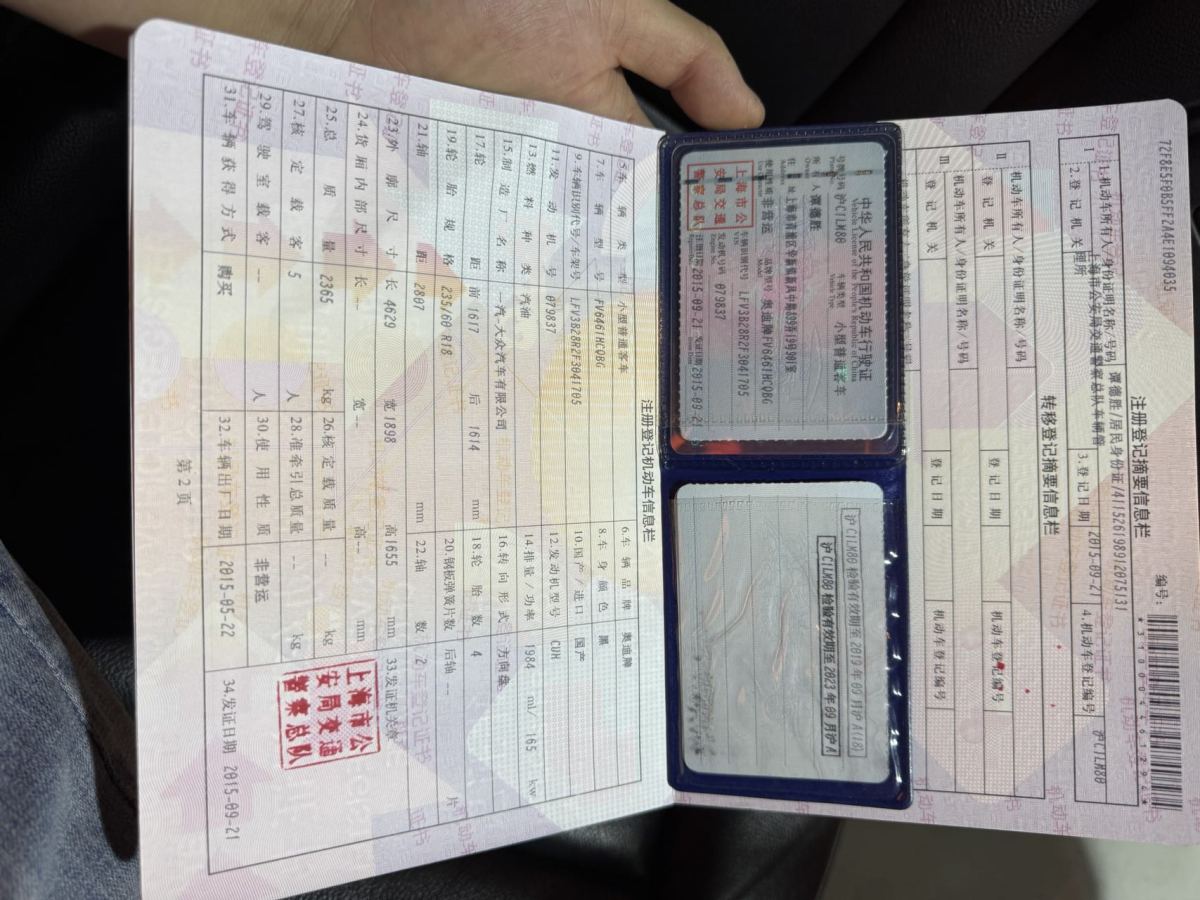 72F8E5F0B5FF2A4E1094035
编号:
*310004461294*
注册登记摘要信息栏
Ⅰ
1.机动车所有人/身份证明名称/号码 谭德胜/居民身份证/411526198912075131
2.登记机关 上海市公安局交通警察总队车辆管理所 3.登记日期 2015-09-21 4.机动车登记编号 沪C1LM80
转移登记摘要信息栏
Ⅱ
机动车所有人/身份证明名称/号码
登记机关 登记日期 机动车登记编号
Ⅲ
机动车所有人/身份证明名称/号码
登记机关 登记日期 机动车登记编号
中华人民共和国机动车行驶证
Vehicle License of the People's Republic of China
号牌号码 沪C1LM80 车辆类型 小型普通客车
Vehicle Type
所有人 谭德胜
Owner
住址
Address
使用性质 非营运 品牌型号 奥迪牌FV6461HCQBG
Model
上海市公安局交通警察总队
车辆识别代号 LFV3B28R2F3041705
VIN
发动机号码 079837
Engine No.
注册日期 2015-09-21 发证日期 2015-09-2
沪C1LM80 检验有效期至 2019年09月沪A(18)
沪C1LM80 检验有效期至 2023年09月沪A
注册登记机动车信息栏
5.车辆类型 小型普通客车 6.车辆品牌 奥迪牌
7.车辆型号 FV6461HCQBG 8.车身颜色 黑
9.车辆识别代号/车架号 LFV3B28R2F3041705 10.国产/进口 国产
11.发动机号 079837 12.发动机型号 CUH
13.燃料种类 汽油 14.排量/功率 1984 ml/ 165 kw
15.制造厂名称 一汽-大众汽车有限公司 16.转向形式 方向盘
17.轮距 前 1617 后 1614 mm 18.轮胎数 4
19.轮胎规格 235/60 R18 20.钢板弹簧片数 后轴 -- 片
21.轴距 2807 mm 22.轴数 2
23.外廓尺寸 长 4629 宽 1898 高 1655 mm 33.发证机关章
24.货厢内部尺寸 长 -- 宽 -- 高 -- mm
25.总质量 2365 kg 26.核定载质量 -- kg
27.核定载客 5 人 28.准牵引总质量 -- kg
29.驾驶室载客 --- 人 30.使用性质 非营运
31.车辆获得方式 购买 32.车辆出厂日期 2015-05-22 34.发证日期 2015-09-21
上海市公安局交通警察总队
第 2 页